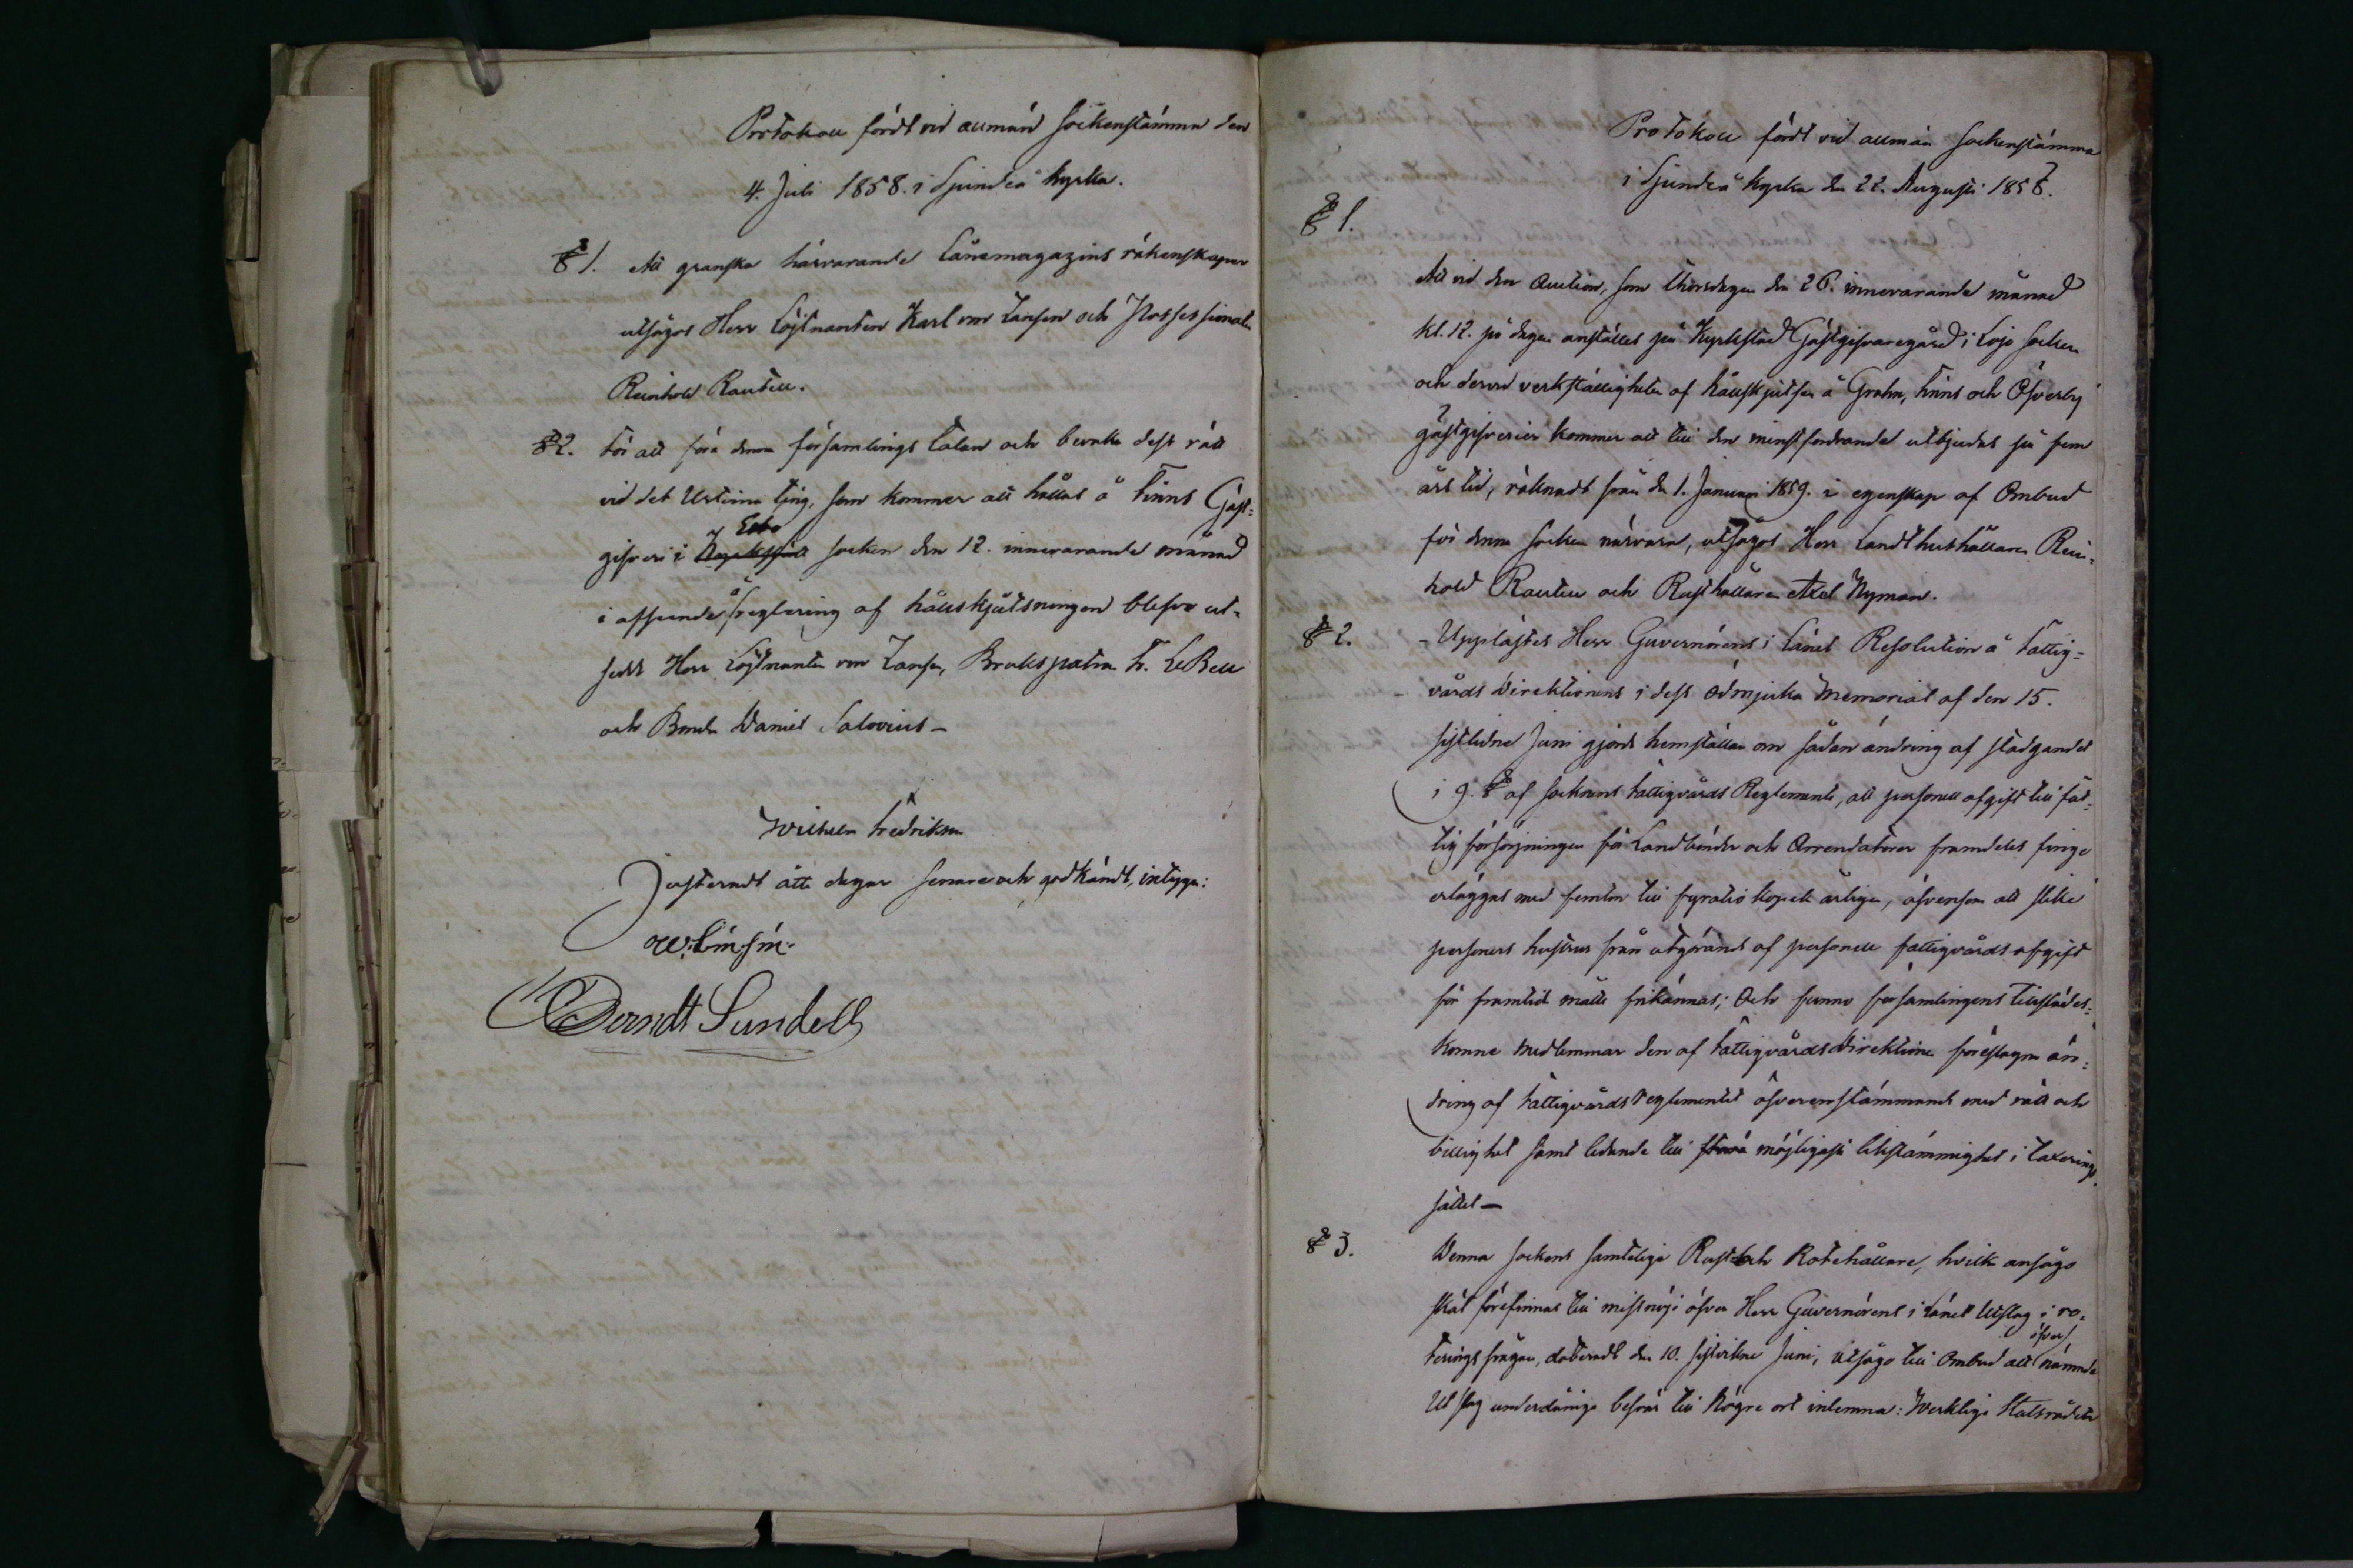 Protokoll fördt vid allmän Sockenstämma den
4. Juli 1858. i Sjundeå kyrka.
§ 1. Att granska härvarande Lånemagazins räkenskaper
utsågos Herr Löjtnanten Karl von Zansen och Possessionaten
Reinhold Rautell.
§ 2. För att föra denna församlings talan och bevaka dess rätt
vid det Urtima ting, som kommer att hållas å Finns Gäst-
Esbo
gifveri i Kyrkslätt socken den 12. innevarande månad
i afseende å reglering af hållskjutsningen blefvo ut-
sedde Herr Löjtnanten von Zansen, Brukspatron F. LeBell
och Bonden Daniel Salovius –
Wilhelm Fredriksson
Justeradt åtta dagar senare och godkändt, intyga:
Berndt Sundell
Protokoll fördt vid allmän Sockenstämma
i Sjundeå kyrka den 22. Augusti 1858.
§ 1.
Att vid den Auction, som Thorsdagen den 26. innevarande månad
kl. 12. på dagen anställes på Kyrkstad Gästgifvaregård i Lojo socken
och dervid verkställigheten af hållskjutsen å Grahn, Finns och Öfverby
gästgifverier kommer att till den minstfordrande utbjudas på fem
års tid, räknadt från den 1. Januari 1859. i egenskap af Ombud
för denna socken närvara, utsågos Herr Landthushållaren Rein-
hold Rautell och Rusthållaren Axel Nyman.
§ 2. – Upplästes Herr Guvernörens i Länet Resolution å Fattig-
vårds Direktionens i dess ödmjuka Memorial af den 15.
sistlidne Juni gjorda hemställan om sådan ändring af stadgandet
i 9. § af Socknens Fattigvårds Reglemente, att personell afgift till fat-
tig försörjningen för Landbönder och Arrendatorer framdeles finge
erläggas med femton till fyratio kopek årligen, äfvensom att slike
personers hustrur från utgörandet af personella fattigvårds afgift
för framtid måtte frikännas; Och funno församlingens tillstädes-
komne medlemmar den af Fattigvårds Direktionen föreslagna än-
dring af Fattigvårds reglementet öfverensstämmande med rätt och
billighet samt ledande till största möjligaste likstämmighet i taxerings
sättet –
§ 3. Denna sockens samtelige Rust och Rotehållare, hvilka ansågo
skäl förefinnas till missnöje öfver Herr Guvernörens i Länet Utslag i ro-
öfver
terings frågan, dateradt den 10. sistvikne Juni, utsågo till Ombud att nämnde
Utslag underdåniga besvär till högre ort inlemna: Verklige Statsrådet